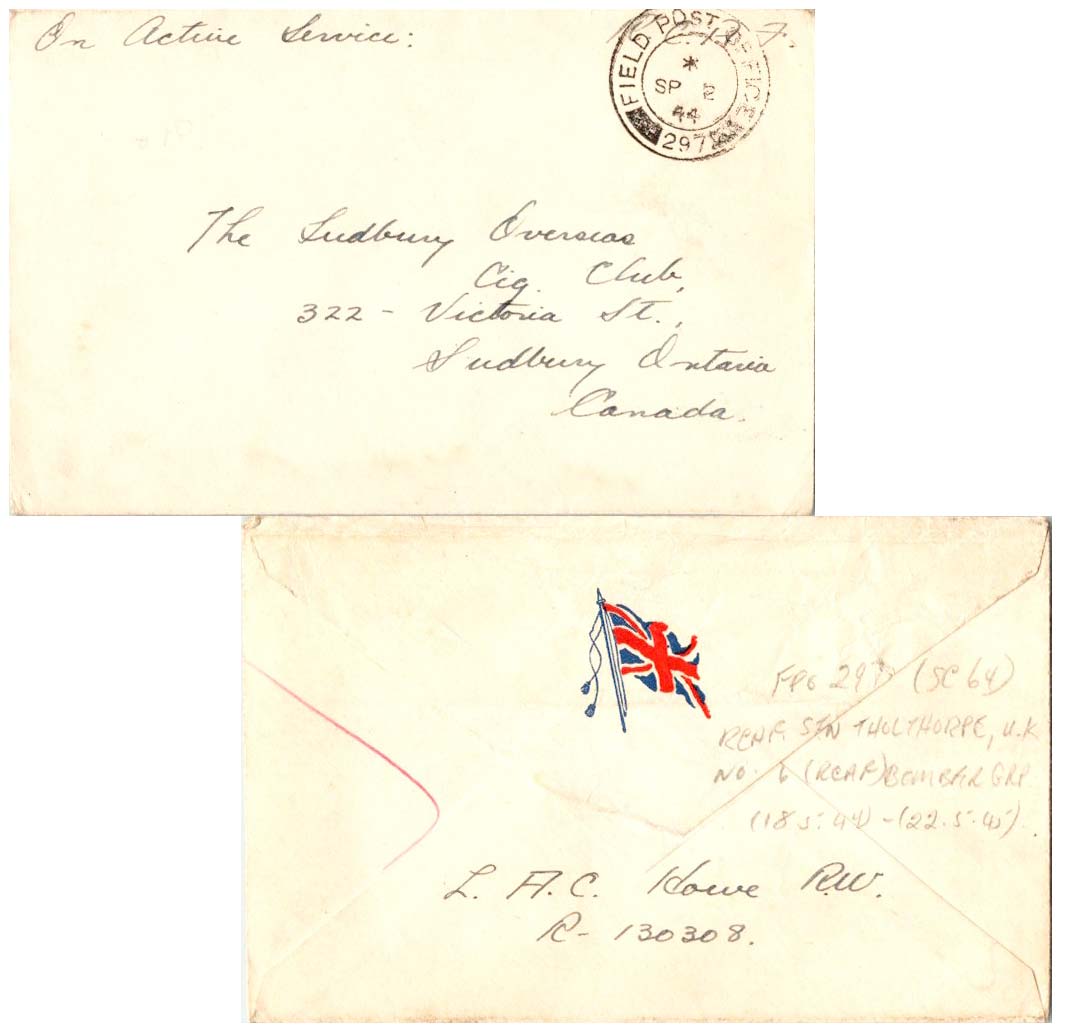 On Active Service:
FIELD POST OFFICE
*
SP 2
44
297
The Sudbury Overseas
Cig. Club,
322 - Victoria St.,
Sudbury Ontario
Canada.
FPO 297 (SC 64)
RCAF. STN THOLTHORPE, U.K
NO. 6 (RCAF) BOMBER GRP
(18.5.44) - (22.5.45).
L. A. C. Howe R.W.
R- 130308.